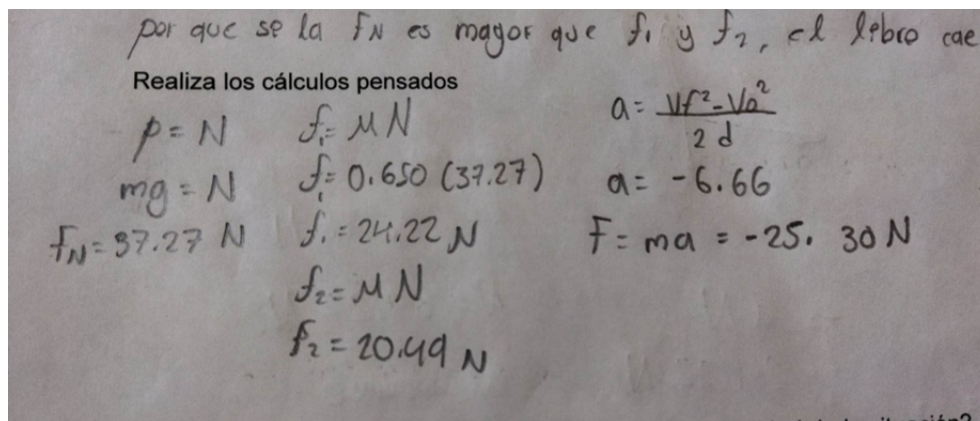 por que se la FN es mayor que f₁ y f₂, el libro cae
Realiza los cálculos pensados
p = N
mg = N
FN = 37.27 N
f₁ = μN
f₁ = 0.650 (37.27)
f₁ = 24.22 N
f₂ = μN
f₂ = 20.49 N
a = Vf² - Vo² / 2 d
a = -6.66
F = ma = -25. 30 N